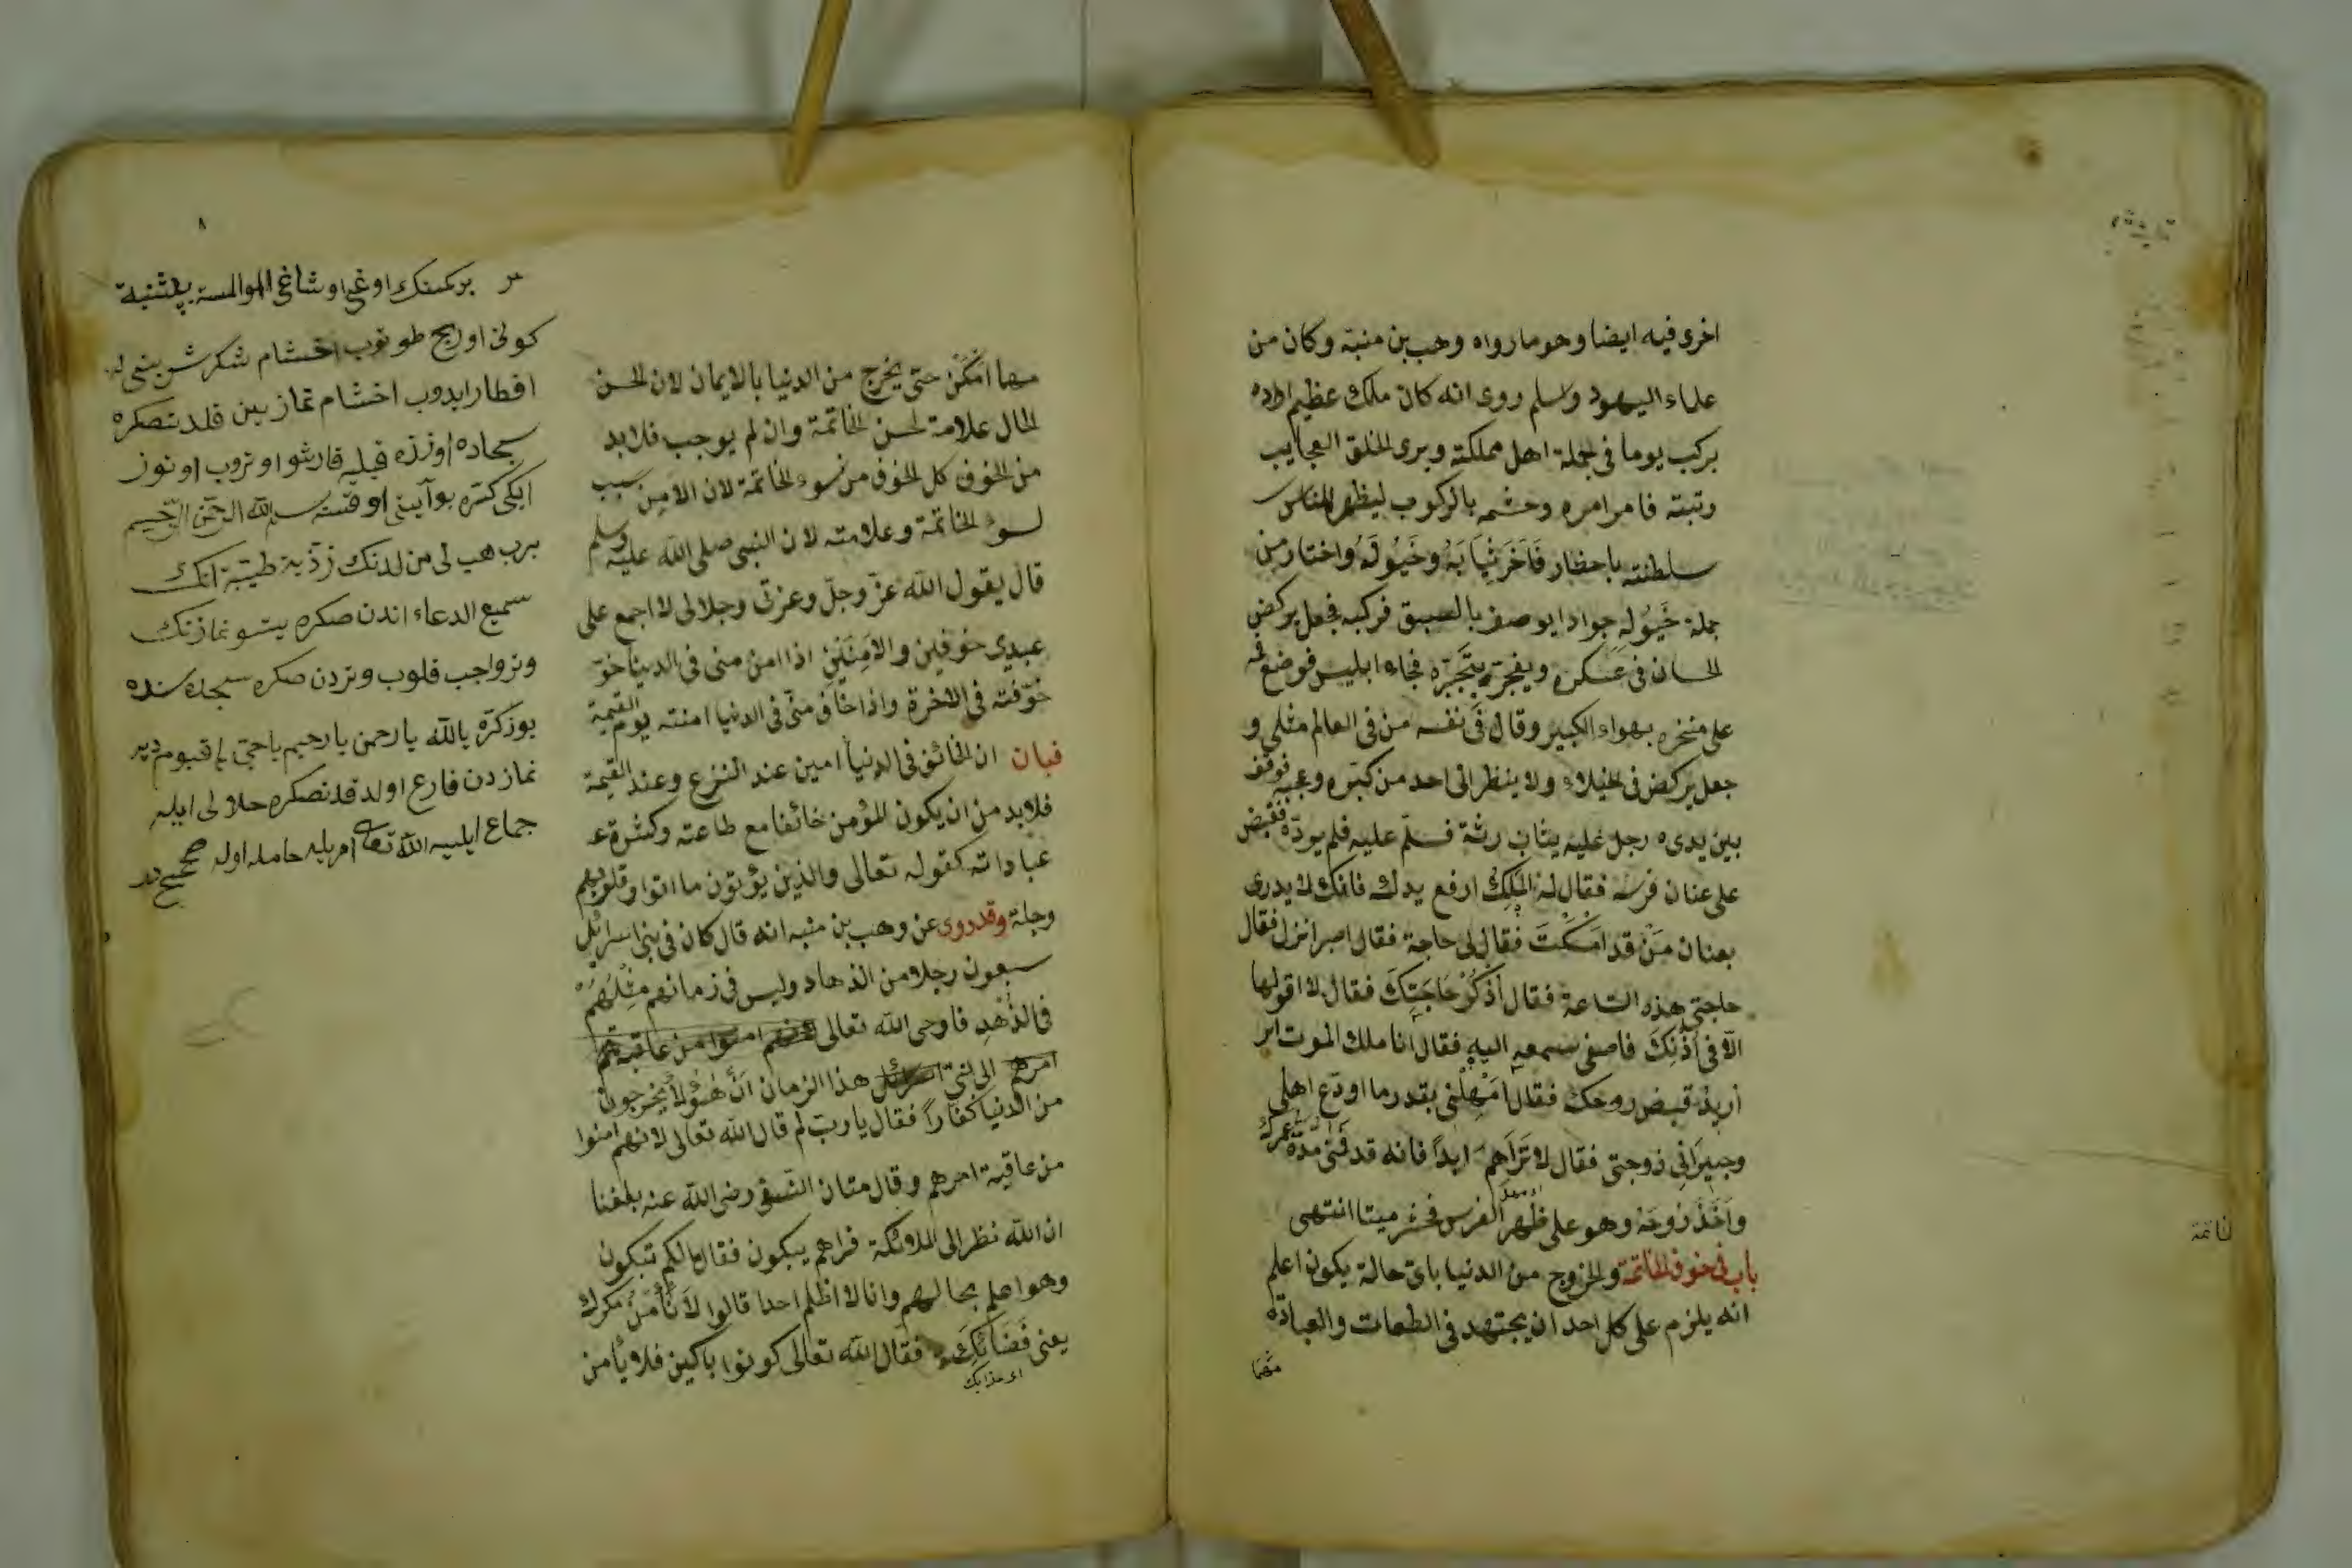 اخرى فيه ايضا وهو ما رواه وهب بن منبة وكان من
علماء اليهود وسلم روى انه كان ملك عظيم اراده
يركب يوما فى لجملة اهل مملكته ويرى الخلق العجايب
وتبته فامر امره وحشمه بالركوب ليظهر للناس
سلطنته باحظار فَاَخَرَثِيَابَهُ وخَيُوُلَهُ واختار من
جملة خَيُوُلِهِ جوادا يوصف بالسبق فركبه فجعل يركض
الحسان فى عسكره ويفجر بِتَجَبّرِهِ فجاء ابليس فوضع فمه
على منخره بهواء الكبير وقال فى نفسه من فى العالم مثلى و
جعل يركض فى الخيلاء ولا ينظر الى احد من كبره وعجبه فوقف
بين يديه رجل عليه يثاب رثة فسلّم عليه فلم يودّه فقبض
على عنان فرسه فقال له الْمَلِكُ ارفع يدك فانك لا يدرى
بعنان مَنْ قد امسَكْتَ فقال لى حاجة فقال اصبر انزل فقال
حاجتى هذه الساعة فقال اُذْكُرْ حَاجَتِكَ فقال لا اقولها
الّا فى اُذُنِكَ فاصغى بسمعه اليه فقال انا ملك الموت
اُريدُ قبض روحك فقال اَمْهِلْنى بقدر ما اودّع اهلى
وجيرانى زوجتى فقال لا تَرَاهم ابداً فانه قد فَنَى مُدّة عمرك
واَخَذَ رُوحَهُ وهو على ظهر الفرس فخر ميتا انتهى
باب فى خوف الخاتمة والخروج من الدنيا باى حالة يكون اعلم
انه يلزم على كل احد ان يجتهد فى الطعات والعبادة
مهما
خاتمة
٨
مهما اَمْكَنَ حتى يخرج من الدنيا بالايمان لان لحسن
الحال علامة لحسن الخاتمة وان لم يوجب فلابد
من الخوف كل الخوف من سوء الخاتمة لان الامن سبب
لسوء الخاتمة وعلامته لان النبى صلى الله عليه وسلم
قال يقول الله عزّ وجلّ وعزتى وجلالى لا اجمع على
عبدى خوفين والامَنَيْنِ اذا امن منى فى الدينا
خوّفته فى الاخرة واذا خاف منّى فى الدنيا امنته يوم القيمة
فبان ان الخائف فى الدنيا امين عند النزع وعند القيمة
فلابد من ان يكون المؤمن خائفا مع طاعته وكثرة
عباداته كقوله تعالى والذين يؤتون ما اتوا وقلوبهم
وجلة وقد روى عن وهب بن منبه انه قال كان فى بنى اسرائل
سبعون رجلا من الذهاد وليس فى زمانهم مثْلَهُمْ
فى الذّهْدِ فاوحى الله تعالى امنوا من عاقبة
امرهم الى نبىّ هذا الزمان اَنَّ هٰؤُلَاْ يخرجون
من الدنيا كفاراً فقال يا ربّ لم قال الله تعالى لانهم امنوا
من عاقبة امرهم وقال رضى الله عنه بلغنا
ان الله نظر الى الملائكة فراهم يبكون فقال مالكم تبكون
وهو اعلم بحالهم وانا لا اظلم احدا قالوا لاَ نَأْمَنُ مكرك
يعنى قَضَائِكَ فقال الله تعالى كونوا باكين فلا يأمن
اى عذابك
بر كمسنك اوغلى اوشاغى اولمسه پنچشنبه
كونى اوريج طوتوب اخشام شكر شربتى له
افطار ايدوب اخشام نماز بين قلدقدنصكره
سجاده اوزره قبليه قارشو اوتروب اوتوز
ايكى كره بو آيتى اوقسه بسم الله الرّحمن الرّحيم
برب هب لى من لدنك ذرية طيّبة انك
سميع الدعاء اندن صكره يتسو نمازنك
وترواجب قلوب وتردن صكره سجده سنده
يوز كرّه يا الله يا رحمن يا رحيم ياحىّ يا قيوم دير
نمازدن فارغ اولدقدنصكره حلالى ايله
جماع ايليه الله تعالى امريله حامله اوله صحيحدر